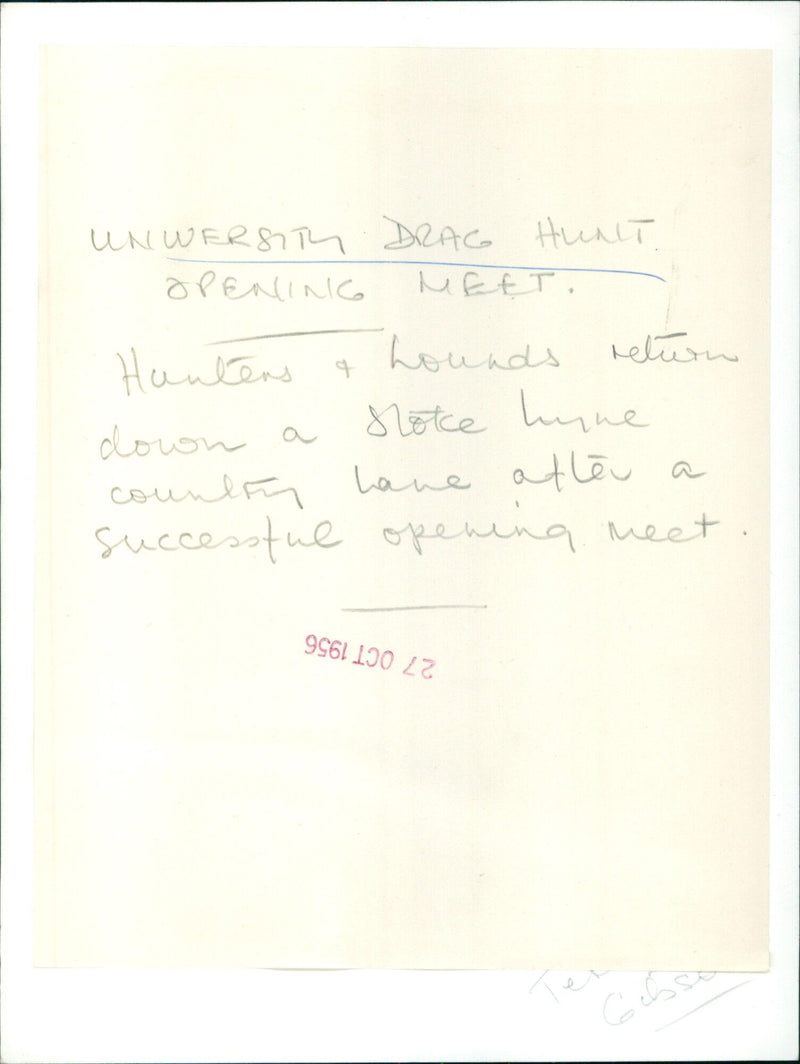 UNIVERSITY DRAG HUNT
OPENING MEET.
Hunters + hounds return
down a Stoke Lyne
country lane after a
successful opening meet.
27 OCT 1956